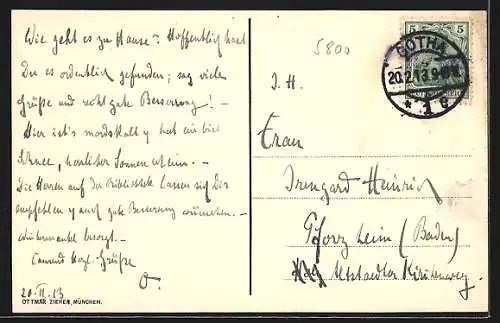 Wie geht es zu Hause? Hoffentlich hast
Du es ordentlich gefunden; sag viele
Grüße und recht gute Besserung! –
Hier ist's mordskalt u hat ein bissl
Schnee, herrlicher Sonnenschein. –
Die Herren auf der Bibliothek lassen sich Dir
empfehlen u auch gute Besserung wünschen. –
Wintermantel besorgt. –
Tausend herzl. Grüße
O.
20.II.13
OTTMAR ZIEHER, MÜNCHEN.
5800
I. H.
Frau
Irmgard Heinrich
Pforzheim (Baden)
Altstaedter Kirchenweg.
5 5
GOTHA
20.2.13.
* 1 g